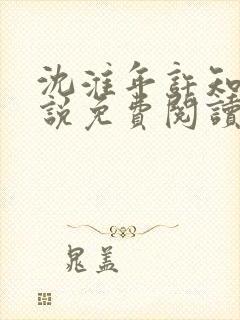 沈淮年許知
說免費閱讀
晁蓋